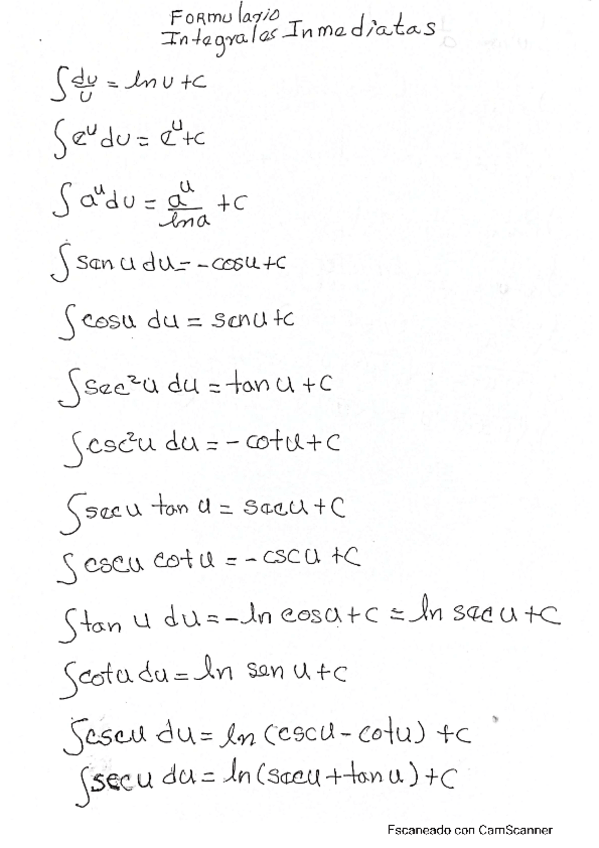 Formulario
Integrales Inmediatas
∫ du/u = ln u + c
∫ e^u du = e^u + c
∫ a^u du = a^u/ln a + c
∫ sen u du = -cos u + c
∫ cos u du = sen u + c
∫ sec²u du = tan u + c
∫ csc²u du = -cot u + c
∫ sec u tan u = sec u + c
∫ csc u cot u = -csc u + c
∫ tan u du = -ln cos u + c = ln sec u + c
∫ cot u du = ln sen u + c
∫ csc u du = ln (csc u - cot u) + c
∫ sec u du = ln (sec u + tan u) + c
Escaneado con CamScanner